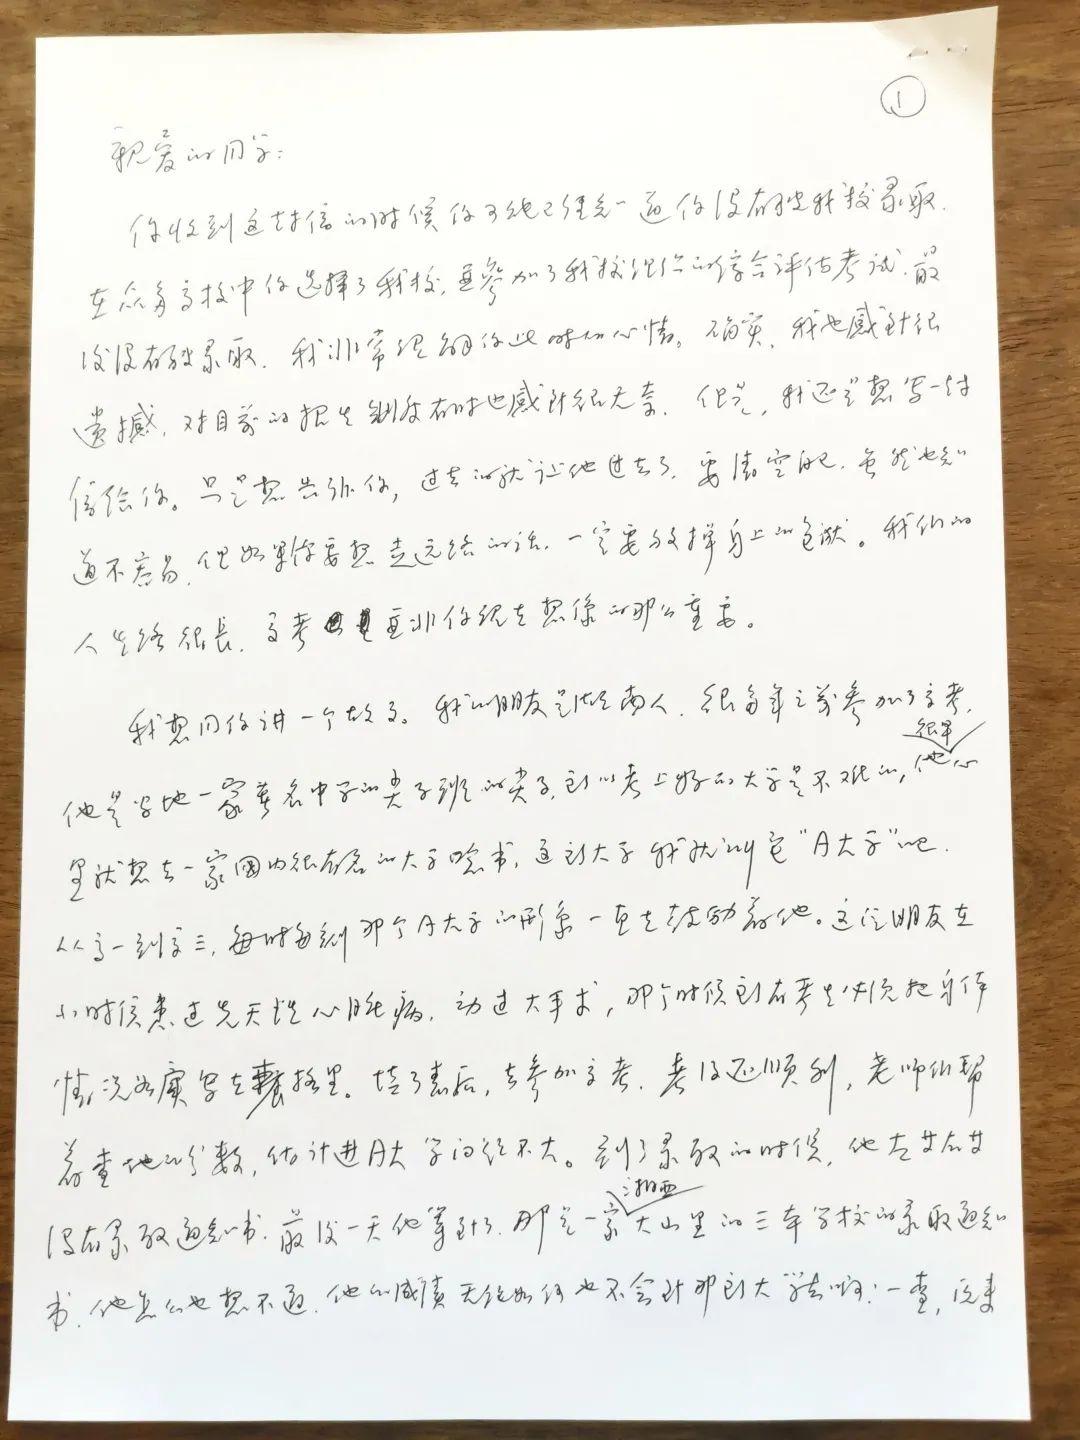 ①
亲爱的同学：
你收到这封信的时候你可能已经知道你没有被我校录取.
在众多高校中你选择了我校,并参加了我校组织的综合评估考试.最
后没有被录取.我非常理解你此时的心情。确实,我也感到很
遗憾,对目前的招生制度有时也感到很无奈.但是,我还是想写一封
信给你。只是想告诉你,过去的就让他过去了.要清空自己.虽然也知
道不容易,但如果你要想走远路的话,一定要放掉身上的包袱。我们的
人生路很长,高考并非你现在想像的那么重要。
我想同你讲一个故事。我的朋友是湖南人,很多年之前参加了高考.
他是当地一家著名中学的尖子班的尖子,所以考上好的大学是不难的,他很早心
里就想去一家国内很有名的大学念书,这所大学我就叫它"A大学"吧.
从高一到高三,每时每刻那个A大学的形象一直在鼓励着他。这位朋友在
小时候患过先天性心脏病,动过大手术,那个时候所有考生必须把身体
情况如实写在表格里。填了表后,去参加高考.考得还顺利,老师们帮
着查他的分数,估计进A大学问题不大。到了录取的时候,他左等右等
没有录取通知书.最后一天他等到了.那是一家湘西大山里的三本学校的录取通知
书.他怎么也想不通.他的成绩无论如何也不会到那所大学去啊!一查,原来